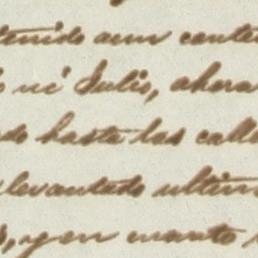 tenido aun conte
o ni Julio, ahora
do hasta las calle
levantado ultim
s, y en cuanto